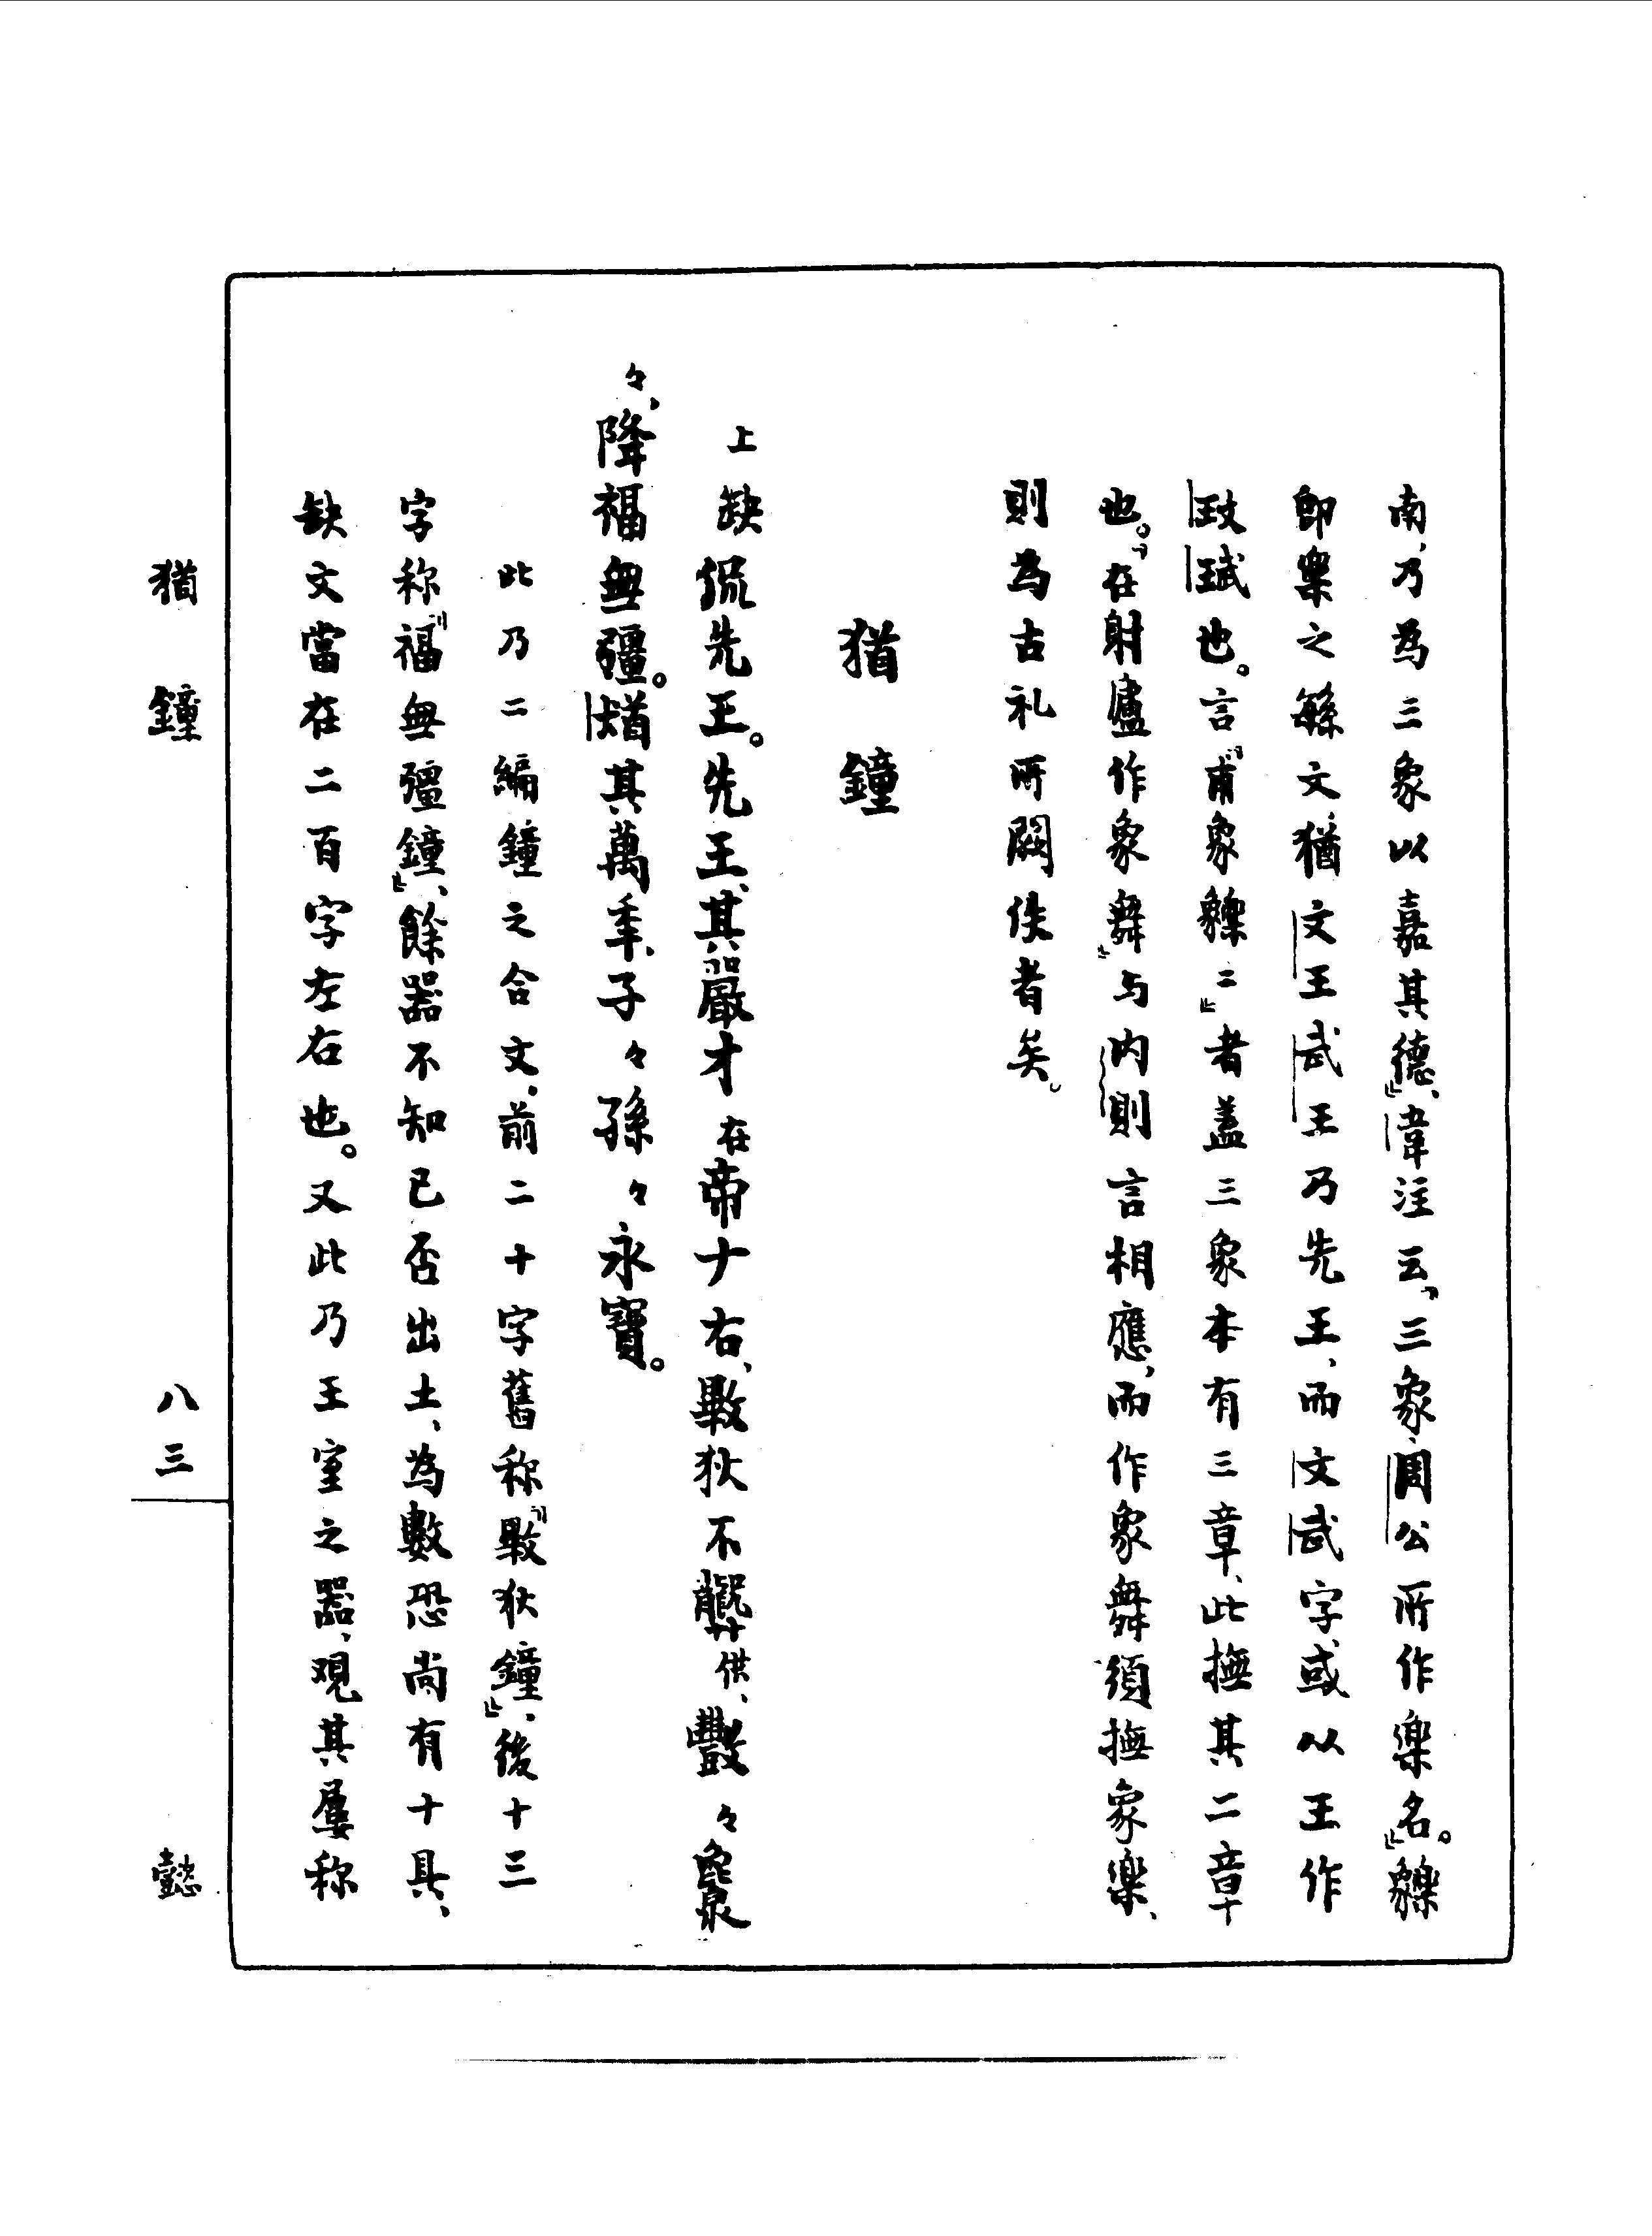 南，乃為三象以嘉其德』、韋注云，『三象、周公所作樂名。』𧰼樂
即樂之繇文，猶文王武王乃先王，而文武字或以王作
玟珷也。言『甫象樂二』者蓋三象本有三章，此撫其二章
也。『在射盧作象舞』与内則言相應，而作象舞須撫象樂，
則為古礼所闕佚者矣。
猶鐘
上缺侃先王。先王其嚴才在帝ナ右，斁狄不龏供，數々㲋
々，降福無彊。猶其萬年，子々孫々永寶。
此乃二編鐘之合文，前二十字舊称『斁狄鐘』，後十三
字称『福無彊鐘』，餘器不知已否出土，為數恐尚有十具，
缺文當在二百字左右也。又此乃王室之器，观其屢称
猶鐘
八三
懿